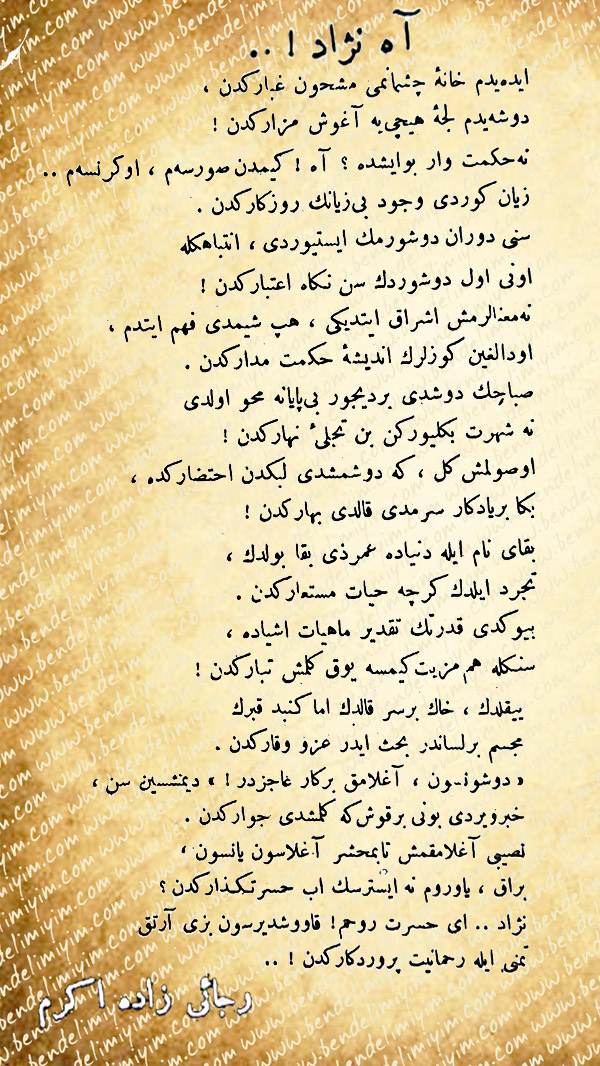 آه نژاد ! ..
ایده‌یدم خانهٔ چشمانمی مشحون غبارکدن ،
دوشه‌یدم لجهٔ هیچی‌یه آغوش مزارکدن !
نه‌حکمت وار بوایشده ؟ آه ! کیمدن صورسه‌م ، اوکرنسه‌م ..
زیان کوردی وجود بی‌زیانك روزکارکدن .
سنی دوران دوشورمك ایستیوردی ، انتباهکله
اونی اول دوشوردك سن نکاه اعتبارکدن !
نه‌معنالرمش اشراق ایتدیکی ، هپ شیمدی فهم ایتدم ،
اودالغین کوزلرك اندیشهٔ حکمت مدارکدن .
صباحك دوشدی بردیجور بی‌پایانه محو اولدی
نه شهرت بکلیورکن بن تجلیٔ نهارکدن !
اوصولمش کل ، که دوشمشدی لبکدن احتضارکده ،
بکا بریادکار سرمدی قالدی بهارکدن !
بقای نام ایله دنیاده عمرذی بقا بولدك ،
تجرد ایلدك کرچه حیات مستعارکدن .
بیوکدی قدرتك تقدیر ماهیات اشیاده ،
سنکله هم مزیت کیمسه یوق کلمش تبارکدن !
ییقلدك ، خاك برسر قالدك اما کنبد قبرك
مجسم برلساندر بحث ایدر عزو وقارکدن .
« دوشونـون ، آغلامق برکار عاجزدر ! » دیمشسین سن ،
خبرویردی بونی برقوش که کلمشدی جوارکدن .
نصیبی آغلامقمش تابمحشر آغلاسون یانسون ،
براق ، یاوروم نه ایسترسك اب حسرتکذارکدن ؟
نژاد .. ای حسرت روحم ! قاووشدیرسون بزی آرتق
تمنی ایله رحمانیت پروردکارکدن ! ..
رجائی زاده اکرم
www.bendelimiyim.com